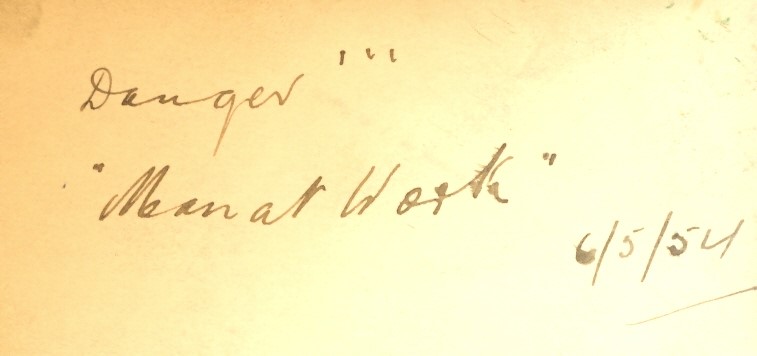 Danger '''
"Man at Work"
6/5/54